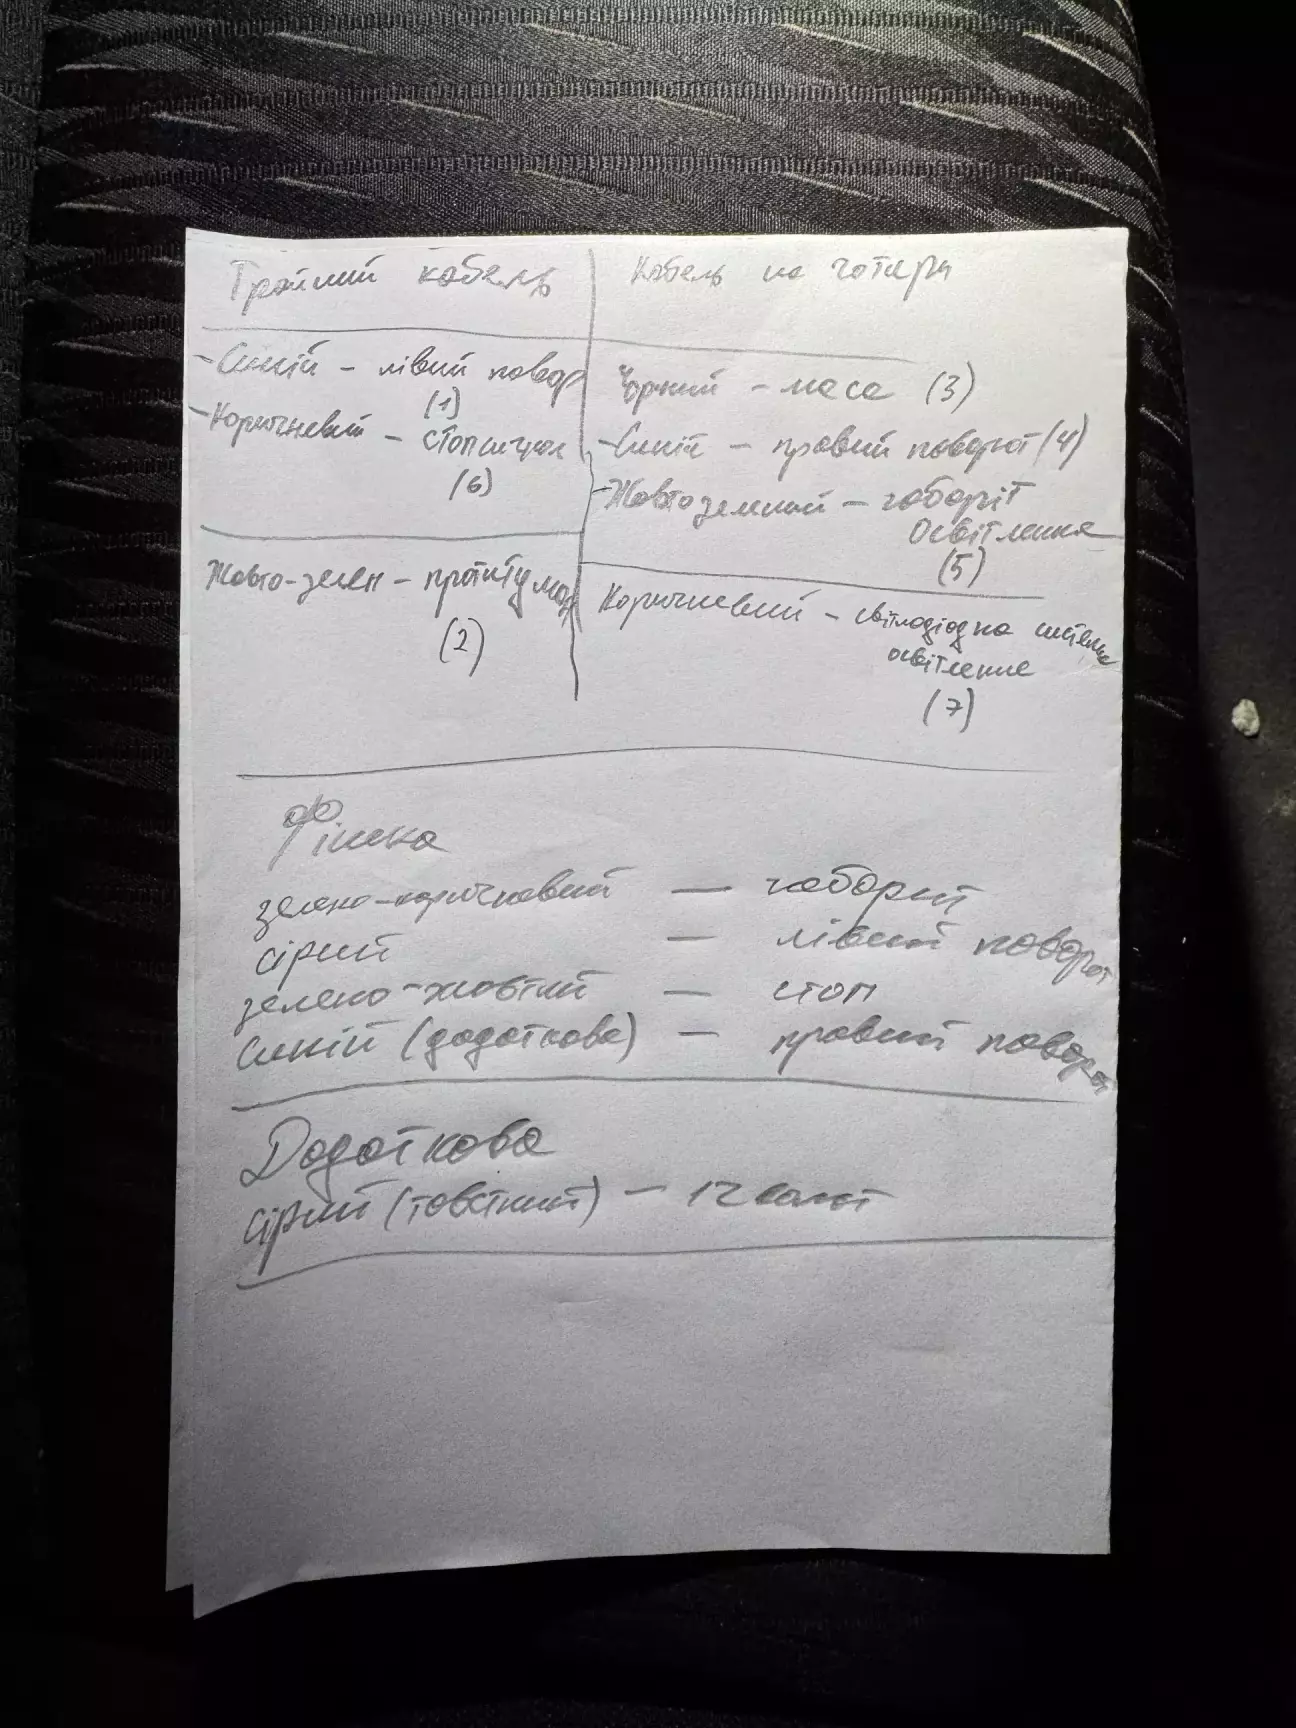 Трайний кабель
- Синій - лівий повор
(1)
- Коричневий - стопсигнал
(6)
Жовто-зелен - протитуман
(2)
Кабель на чотири
Чорний - маса (3)
- Синій - правий поворот (4)
- Жовтозелений - габаріт
Освітлення
(5)
Коричневий - світлодіодна система
освітлення
(7)
Фішка
зелено-коричневий — габорит
сірий — лівий поворот
зелено-жовтий — стоп
Синій (додаткова) — правий поворот
Додаткова
сірий (товстий) - 12 волт